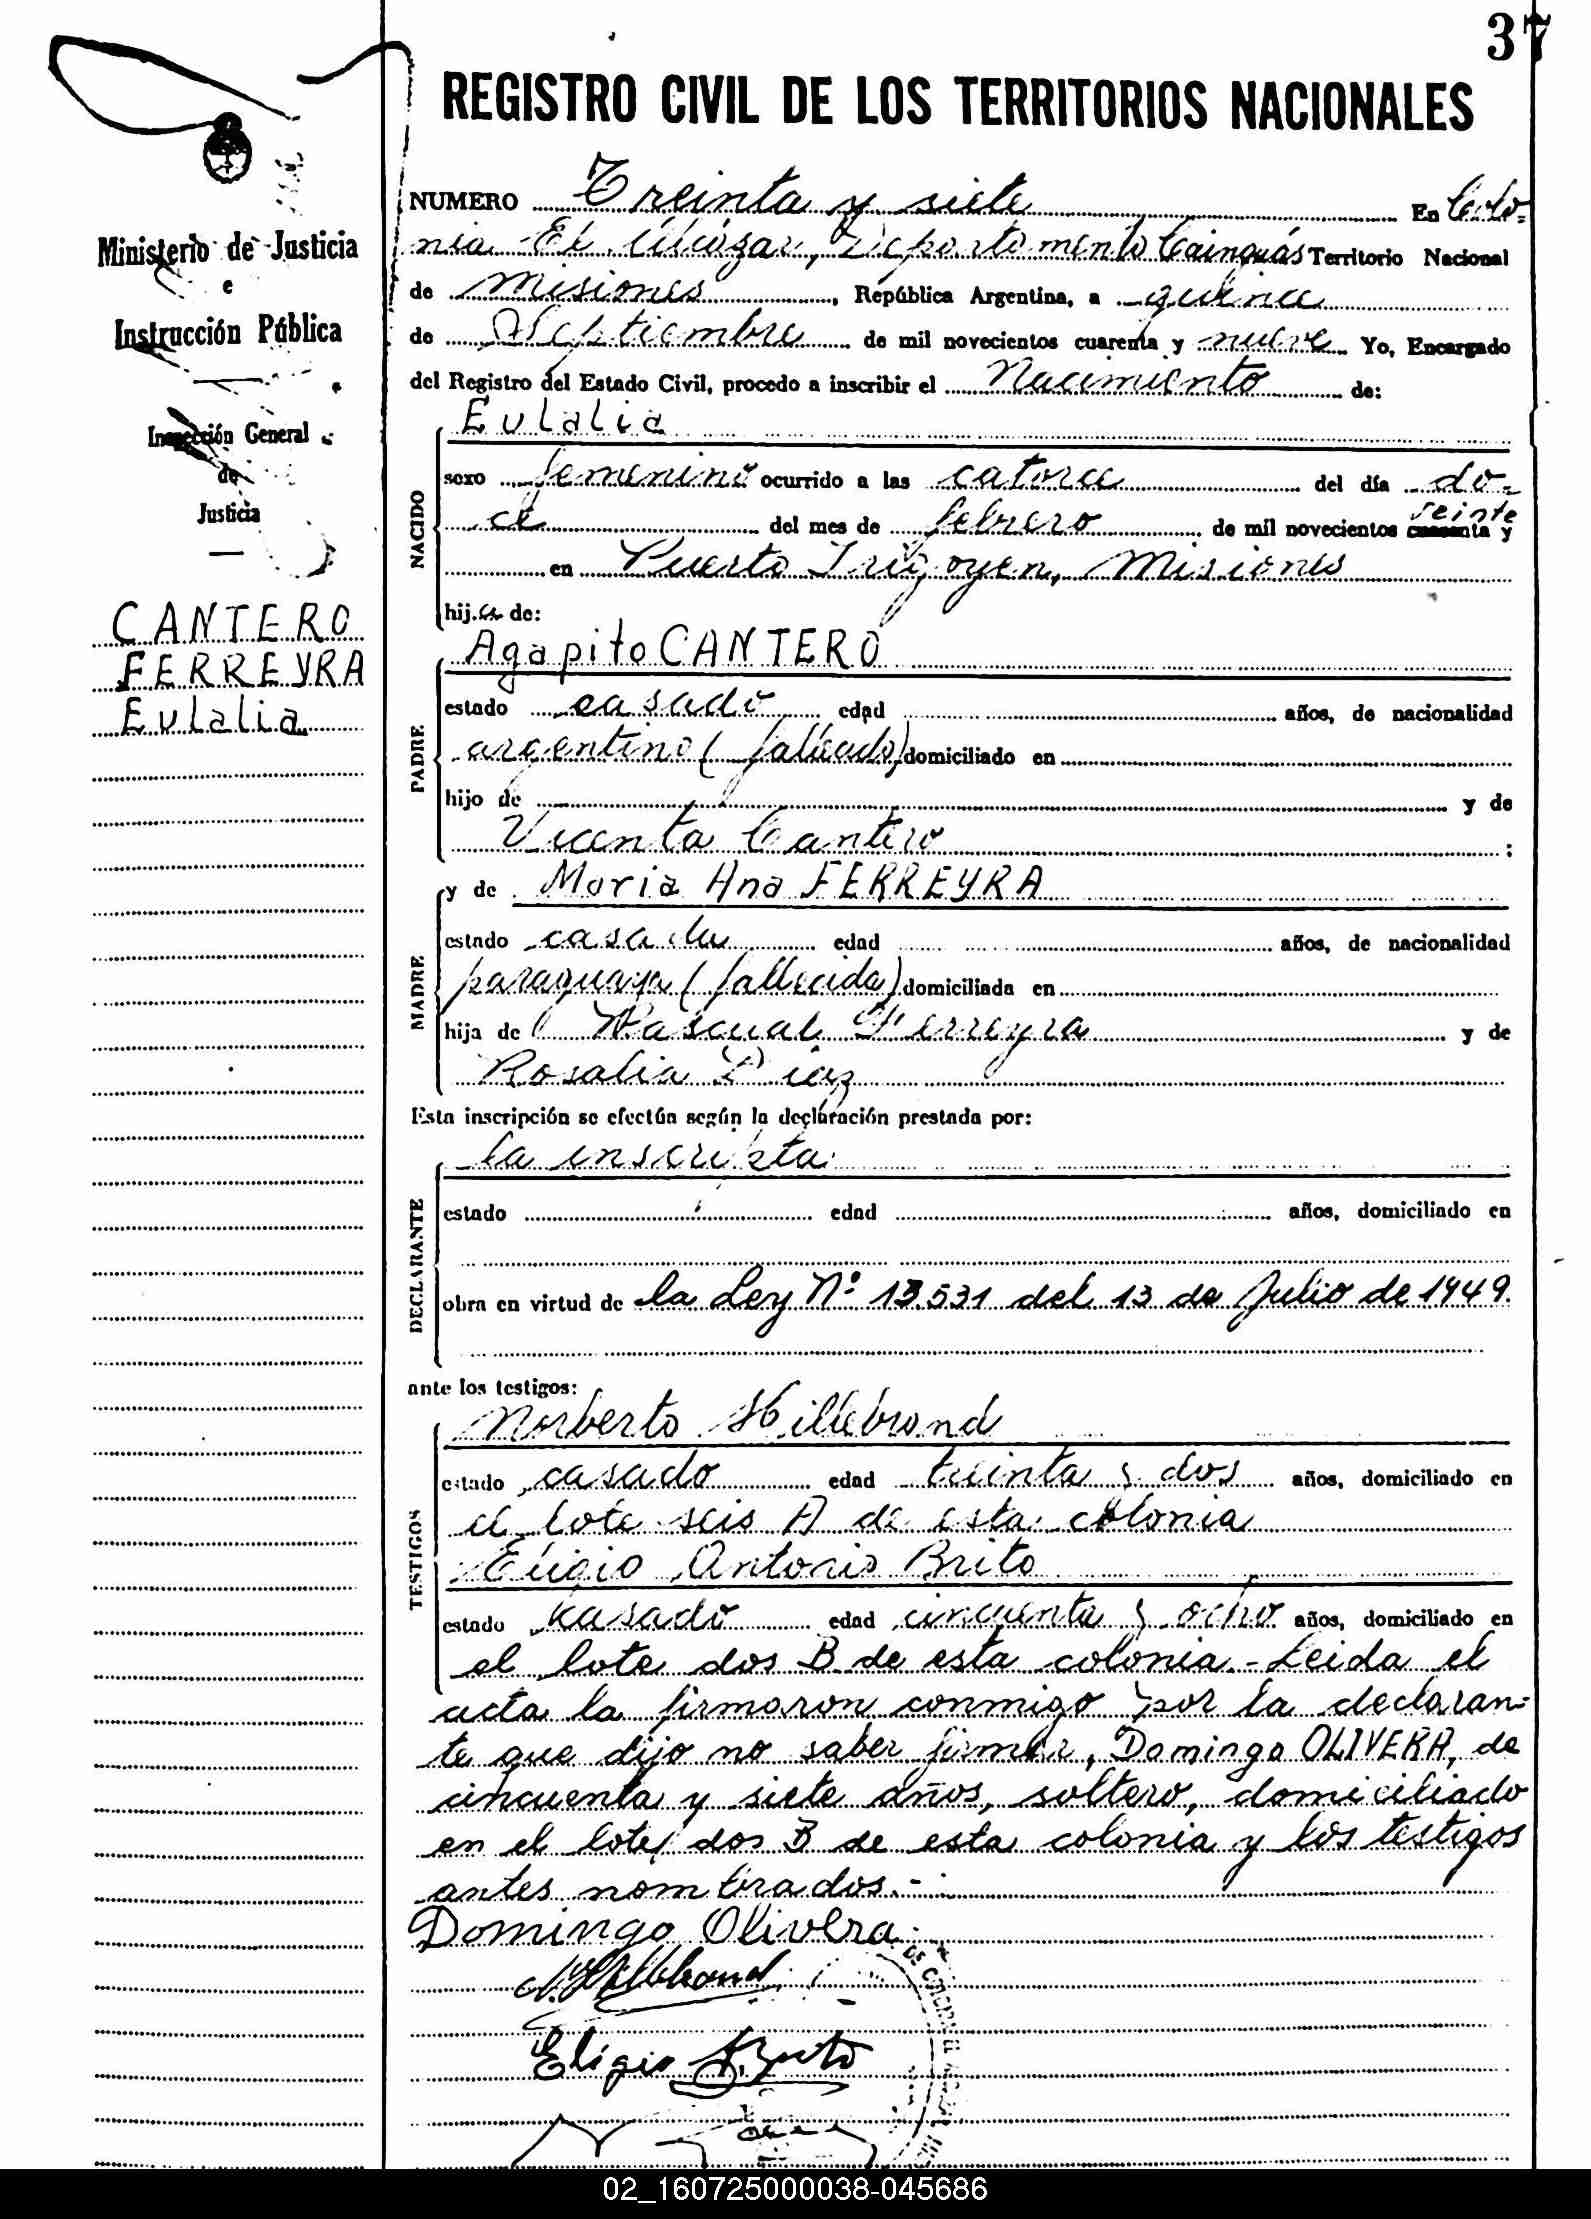 37
REGISTRO CIVIL DE LOS TERRITORIOS NACIONALES
Ministerio de Justicia
e
Instrucción Pública
Inspección General
de
Justicia
CANTERO
FERREYRA
Eulalia
NUMERO Treinta y siete En Colo=
nia El Alcázar, Departamento Cainguás Territorio Nacional
de Misiones, República Argentina, a quince
de Septiembre de mil novecientos cuarenta y nueve Yo, Encargado
del Registro del Estado Civil, procedo a inscribir el Nacimiento de:
Eulalia
NACIDO
sexo femenino ocurrido a las catorce del día do=
ce del mes de febrero de mil novecientos veinte cuarenta y
en Puerto Irigoyen, Misiones
hija de:
PADRE
Agapito CANTERO
estado casado edad años, de nacionalidad
argentino (fallecido) domiciliado en
hijo de y de
Vicenta Cantero ;
MADRE
y de Maria Ana FERREYRA
estado casada edad años, de nacionalidad
paraguaya (fallecida) domiciliada en
hija de Pascual Ferreyra y de
Rosalia Diaz
Esta inscripción se efectúa según la declaración prestada por:
DECLARANTE
la inscripta
estado edad años, domiciliado en
obra en virtud de la Ley Nº 13.531 del 13 de Julio de 1949.
ante los testigos:
TESTIGOS
Norberto Hillebrand
estado casado edad treinta y dos años, domiciliado en
el lote seis A de esta colonia
Eligio Antonio Brito
estado kasado edad cincuenta y ocho años, domiciliado en
el lote dos B de esta colonia.- Leida el
acta la firmaron conmigo por la declaran=
te que dijo no saber firmar, Domingo OLIVERA, de
cincuenta y siete años, soltero, domiciliado
en el lote dos B de esta colonia y los testigos
antes nombrados.-
Domingo Olivera
N. Hillebrand
Eligio A. Brito
02_160725000038-045686